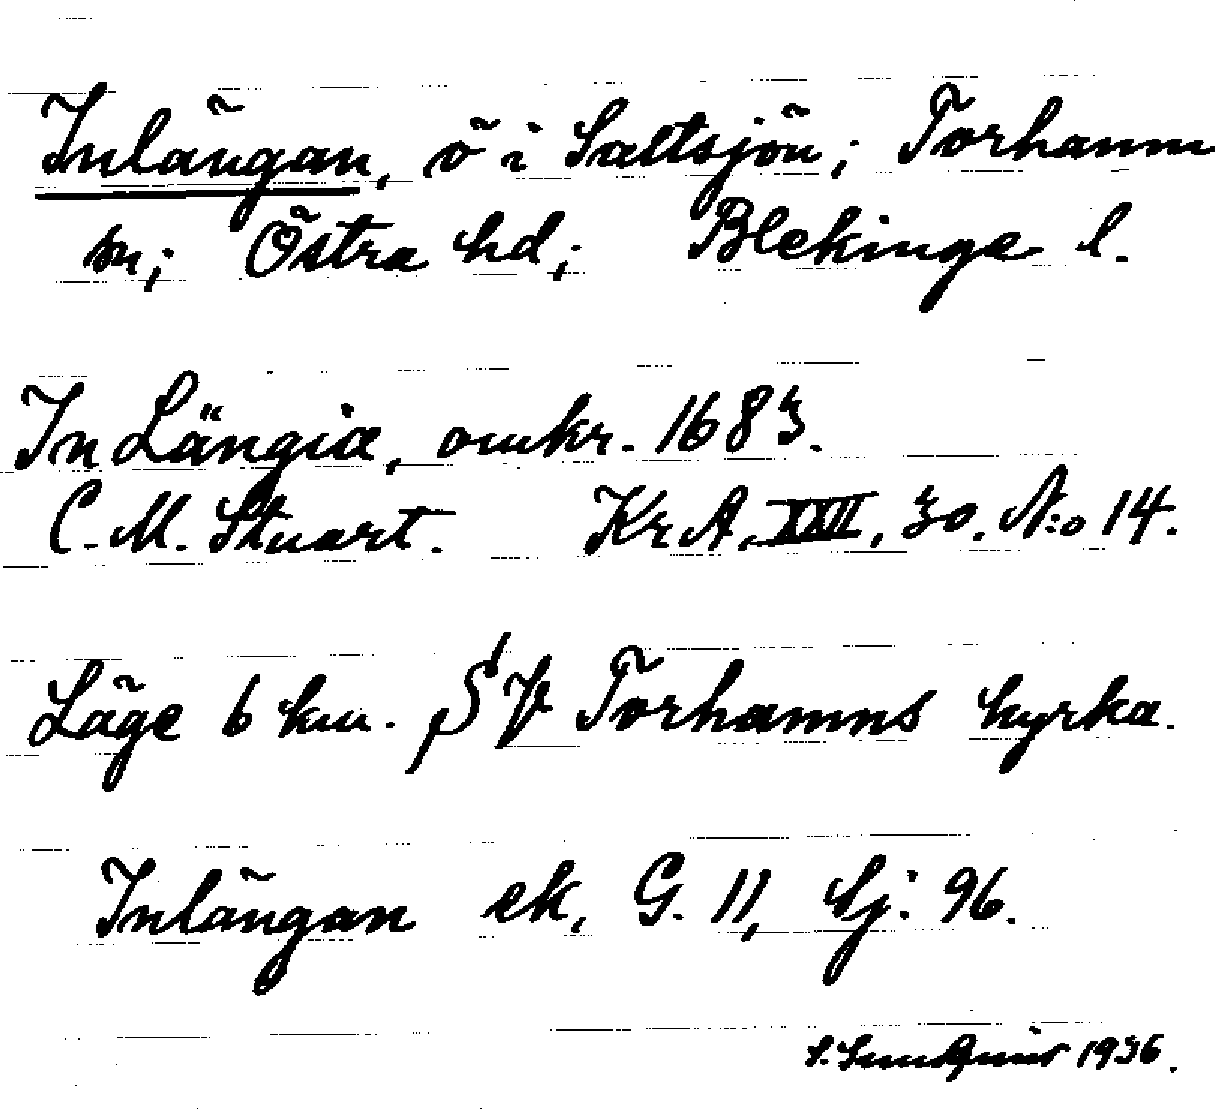 Inlängan, ö i Saltsjön; Torhamn
sn; Östra hd; Blekinge l.
In Längia, omkr. 1683.
C. M. Stuart. KrA, XXII, 30. N:o 14.
Läge 6 km. SV Torhamns kyrka.
Inlängan ek, G. 11, Sj: 96.
1936.